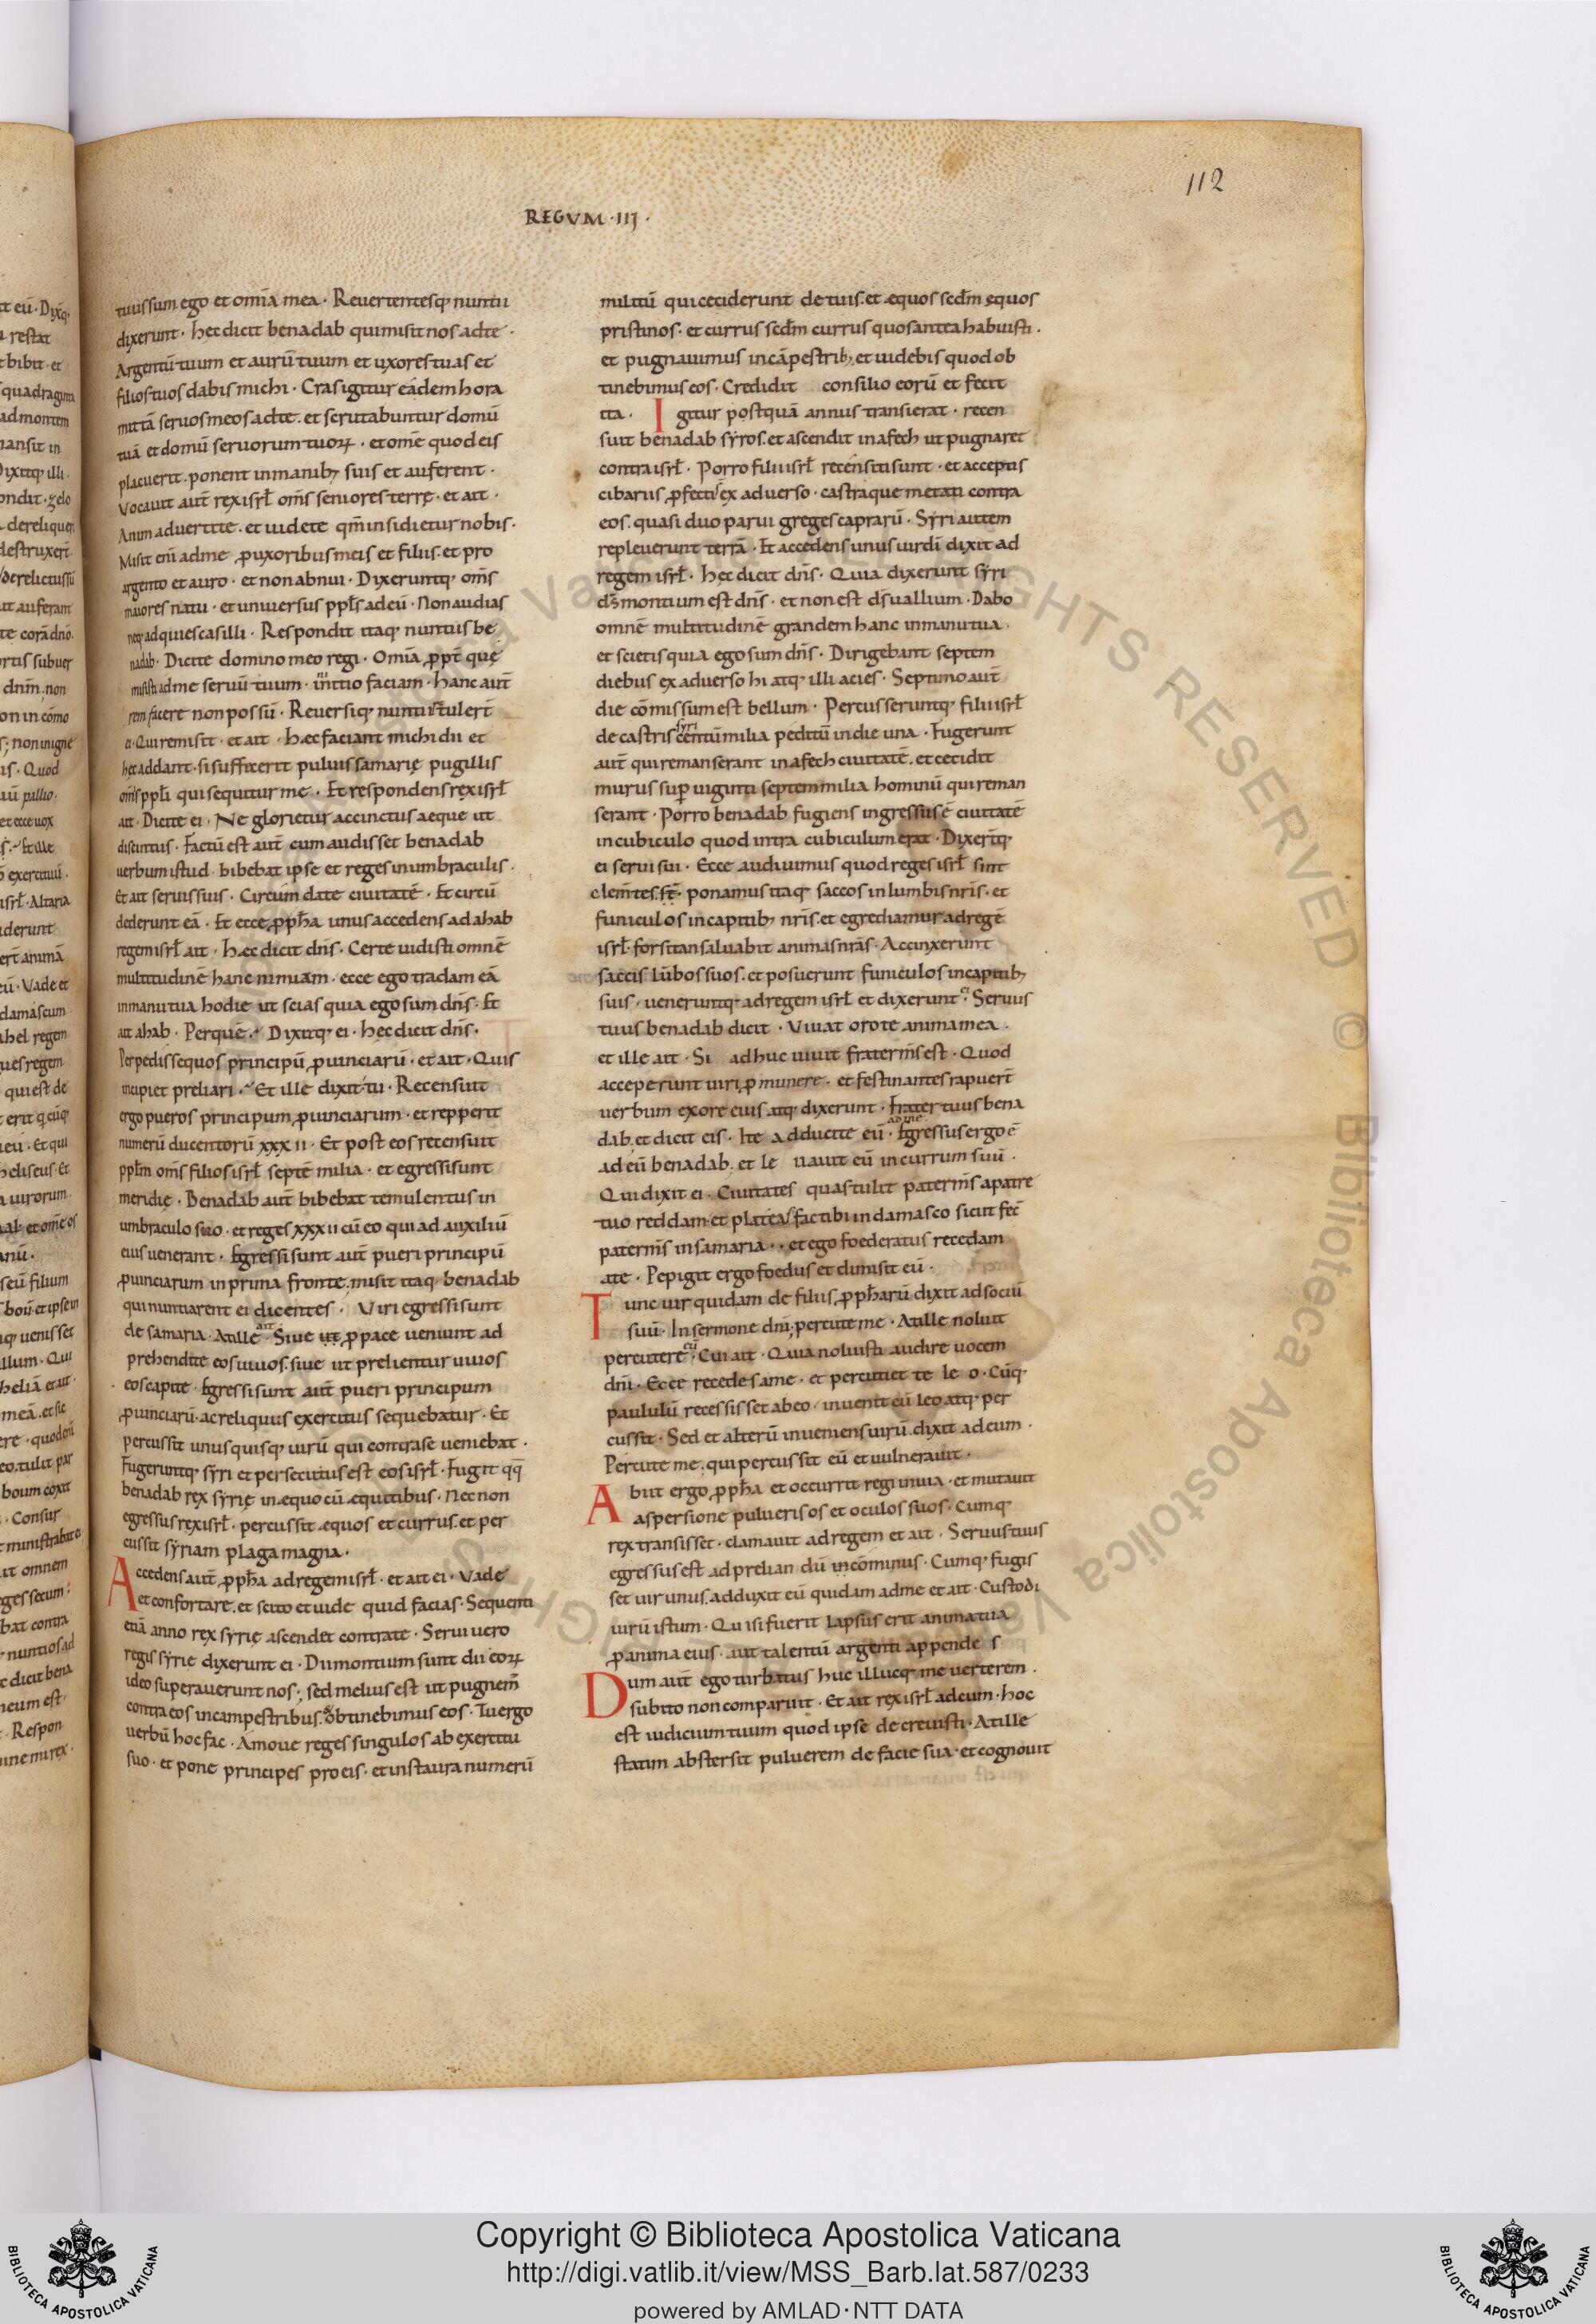 112
REGVM · IIJ ·
tuus sum ego et om̄ia mea · Reuertentesq; nuntii
dixerunt · hęc dicit benadab qui misit nos ad te ·
Argentū tuum et aurū tuum et uxores tuas et
filios tuos dabis michi · Cras igitur eādem hora
mittā seruos meos ad te · et scrutabuntur domū
tuā et domū seruorum tuoꝝ · et om̄e quod eis
placuerit · ponent in manib; suis et auferent ·
Vocauit aut̄ rex isrł om̄s seniores terrę · et ait ·
Animaduertite · et uidete qm̄ insidietur nobis ·
Misit eni ad me ꝓ uxoribus meis et filiis · et pro
argento et auro · et non abnui · Dixeruntq; om̄s
maiores natu · et uniuersus ppłs ad eū · Non audias
neq; adquiescas illi · Respondit itaq; nuntiis be
nadab · Dicite domino meo regi · Om̄ia ꝓpt̄ quę
misisti ad me seruū tuum · in initio faciam · hanc aut̄
rem facere non possū · Reuersiq; nuntii tulert̄
ei · Qui remisit · et ait · hæc faciant michi dii et
hęc addant · si suffecerit puluis samarię pugillis
om̄s ppłi qui sequitur me · Et respondens rex isrł
ait · Dicite ei · Ne glorietur accinctus aeque ut
discinctus · Factū est aut̄ cum audisset benadab
uerbum istud · bibebat ipse et reges in umbraculis ·
Et ait seruis suis · Circumdate ciuitatē · Et circū
dederunt eā · Et ecce ꝓpħa unus accedens ad ahab
regem isrł ait · hæc dicit dn̄s · Certe uidisti omnē
multitudinē hanc nimiam · ecce ego tradam eā
in manu tua hodie ut scias quia ego sum dn̄s · Et
ait ahab · Per quē · Dixitq; ei · hęc dicit dn̄s ·
Per pedissequos principū ꝓuinciarū · et ait · Quis
incipiet preliari · Et ille dixit · tu · Recensuit
ergo pueros principum ꝓuinciarum · et repperit
numerū ducentorū xxx ii · Et post eos recensuit
ppłm om̄s filios isrł septē milia · et egressi sunt
meridię · Benadab aut̄ bibebat temulentus in
umbraculo suo · et reges xxx ii cū eo qui ad auxiliū
eius uenerant · Egressi sunt aut̄ pueri principū
ꝓuinciarum in prima fronte · misit itaq; benadab
qui nuntiarent ei dicentes · Viri egressi sunt
de samaria · At ille ait · Siue ut ꝓ pace ueniunt ad
prehendite eos uiuos · siue ut prelientur uiuos
eos capite · Egressi sunt aut̄ pueri principum
ꝓuinciarū · ac reliquus exercitus sequebatur · Et
percussit unusquisq; uirū qui contra se ueniebat ·
Fugeruntq; syri et persecutus est eos isrł · Fugit qq̄
benadab rex syrię in æquo cū æquitibus · Nec non
egressus rex isrł · percussit æquos et currus · et per
cussit syriam plaga magna ·
Accedens aut̄ ꝓpħa ad regem isrł · et ait ei · Vade
et confortare · et scito et uide quid facias · Sequenti
enā anno rex syrię ascendet contra te · Serui uero
regis syrię dixerunt ei · Dii montium sunt dii eoꝝ
ideo superauerunt nos · sed melius est ut pugnem̄
contra eos in campestribus · et obtinebimus eos · Tu ergo
uerbū hoc fac · Amoue reges singulos ab exercitu
suo · et pone principes pro eis · et instaura numerū
militū qui ceciderunt de tuis · et æquos scd̄m ęquos
pristinos · et currus scd̄m currus quos antea habuisti ·
et pugnauimus in cāpestrib; et uidebis quod ob
tinebimus eos · Credidit consilio eorū et fecit
ita · Igitur postquā annus transierat · recen
suit benadab syros · et ascendit in afech ut pugnaret
contra isrł · Porro filii isrł recensiti sunt · et acceptis
cibariis ꝓfecti ex aduerso · castraque metati contra
eos · quasi duo parui greges caprarū · Syri autem
repleuerunt terrā · Et accedens unus uir di dixit ad
regem isrł · hęc dicit dn̄s · Quia dixerunt syri
ds̄ montium est dn̄s · et non est ds̄ uallium · Dabo
omnē multitudinē grandem hanc in manu tua ·
et scietis quia ego sum dn̄s · Dirigebant septem
diebus ex aduerso hi atq; illi acies · Septimo aut̄
die cōmissum est bellum · Percusseruntq; filii isrł
de castris syri centū milia peditū in die una · Fugerunt
aut̄ qui remanserant in afech ciuitatē · et cecidit
murus sup̄ uiginti septem milia hominū qui reman
serant · Porro benadab fugiens ingressus ē ciuitatē
in cubiculo quod intra cubiculum erat · Dixert̄q;
ei serui sui · Ecce audiuimus quod reges isrł sint
clem̄tes · st̄ · ponamus itaq; saccos in lumbis nr̄is · et
funiculos in capitib; nr̄is · et egrediamur ad regē
isrł · forsitan saluabit animas nr̄as · Accinxerunt
saccis lūbos suos · et posuerunt funiculos in capitib;
suis · ueneruntq; ad regem isrł et dixerunt ei · Seruus
tuus benadab dicit · Viuat oro te anima mea ·
et ille ait · Si adhuc uiuit frater m̄s est · Quod
acceperunt uiri ꝓ munere · et festinantes rapuert̄
uerbum ex ore eius atq; dixerunt · Frater tuus bena
dab · et dicit eis · Ite adducite eū ad me · Egressus ergo ē
ad eū benadab · et leuauit eū in currum suū ·
Qui dixit ei · Ciuitates quas tulit pater m̄s a patre
tuo reddam · et plateas fac tibi in damasco sicut fec̄
pater m̄s in samaria · · et ego foederatus recedam
a te · Pepigit ergo foedus et dimisit eū ·
Tunc uir quidam de filiis ꝓpħarū dixit ad sociū
suū · In sermone dn̄i · percute me · At ille noluit
percutere eū · Cui ait · Quia noluisti audire uocem
dn̄i · Ecce recedes a me · et percutiet te leo · Cūq;
paululū recessisset ab eo · inuenit eū leo atq; per
cussit · Sed et alterū inueniens uirū · dixit ad eum ·
Percute me · qui percussit eū et uulnerauit ·
Abiit ergo ꝓpħa et occurrit regi in uia · et mutauit
aspersione pulueris os et oculos suos · Cumq;
rex transisset · clamauit ad regem et ait · Seruus tuus
egressus est ad preliandū in cōminus · Cumq; fugis
set uir unus · adduxit eū quidam ad me et ait · Custodi
uirū istum · Qui si fuerit lapsus erit anima tua
ꝓ anima eius · aut talentū argenti appendes
Dum aut̄ ego turbatus huc illucq; me uerterem ·
subito non comparuit · Et ait rex isrł ad eum · hoc
est iudicium tuum quod ipse decreuisti · At ille
statim abstersit puluerem de facie sua · et cognouit
Copyright © Biblioteca Apostolica Vaticana
http://digi.vatlib.it/view/MSS_Barb.lat.587/0233
powered by AMLAD · NTT DATA
BIBLIOTECA APOSTOLICA VATICANA
BIBLIOTECA APOSTOLICA VATICANA